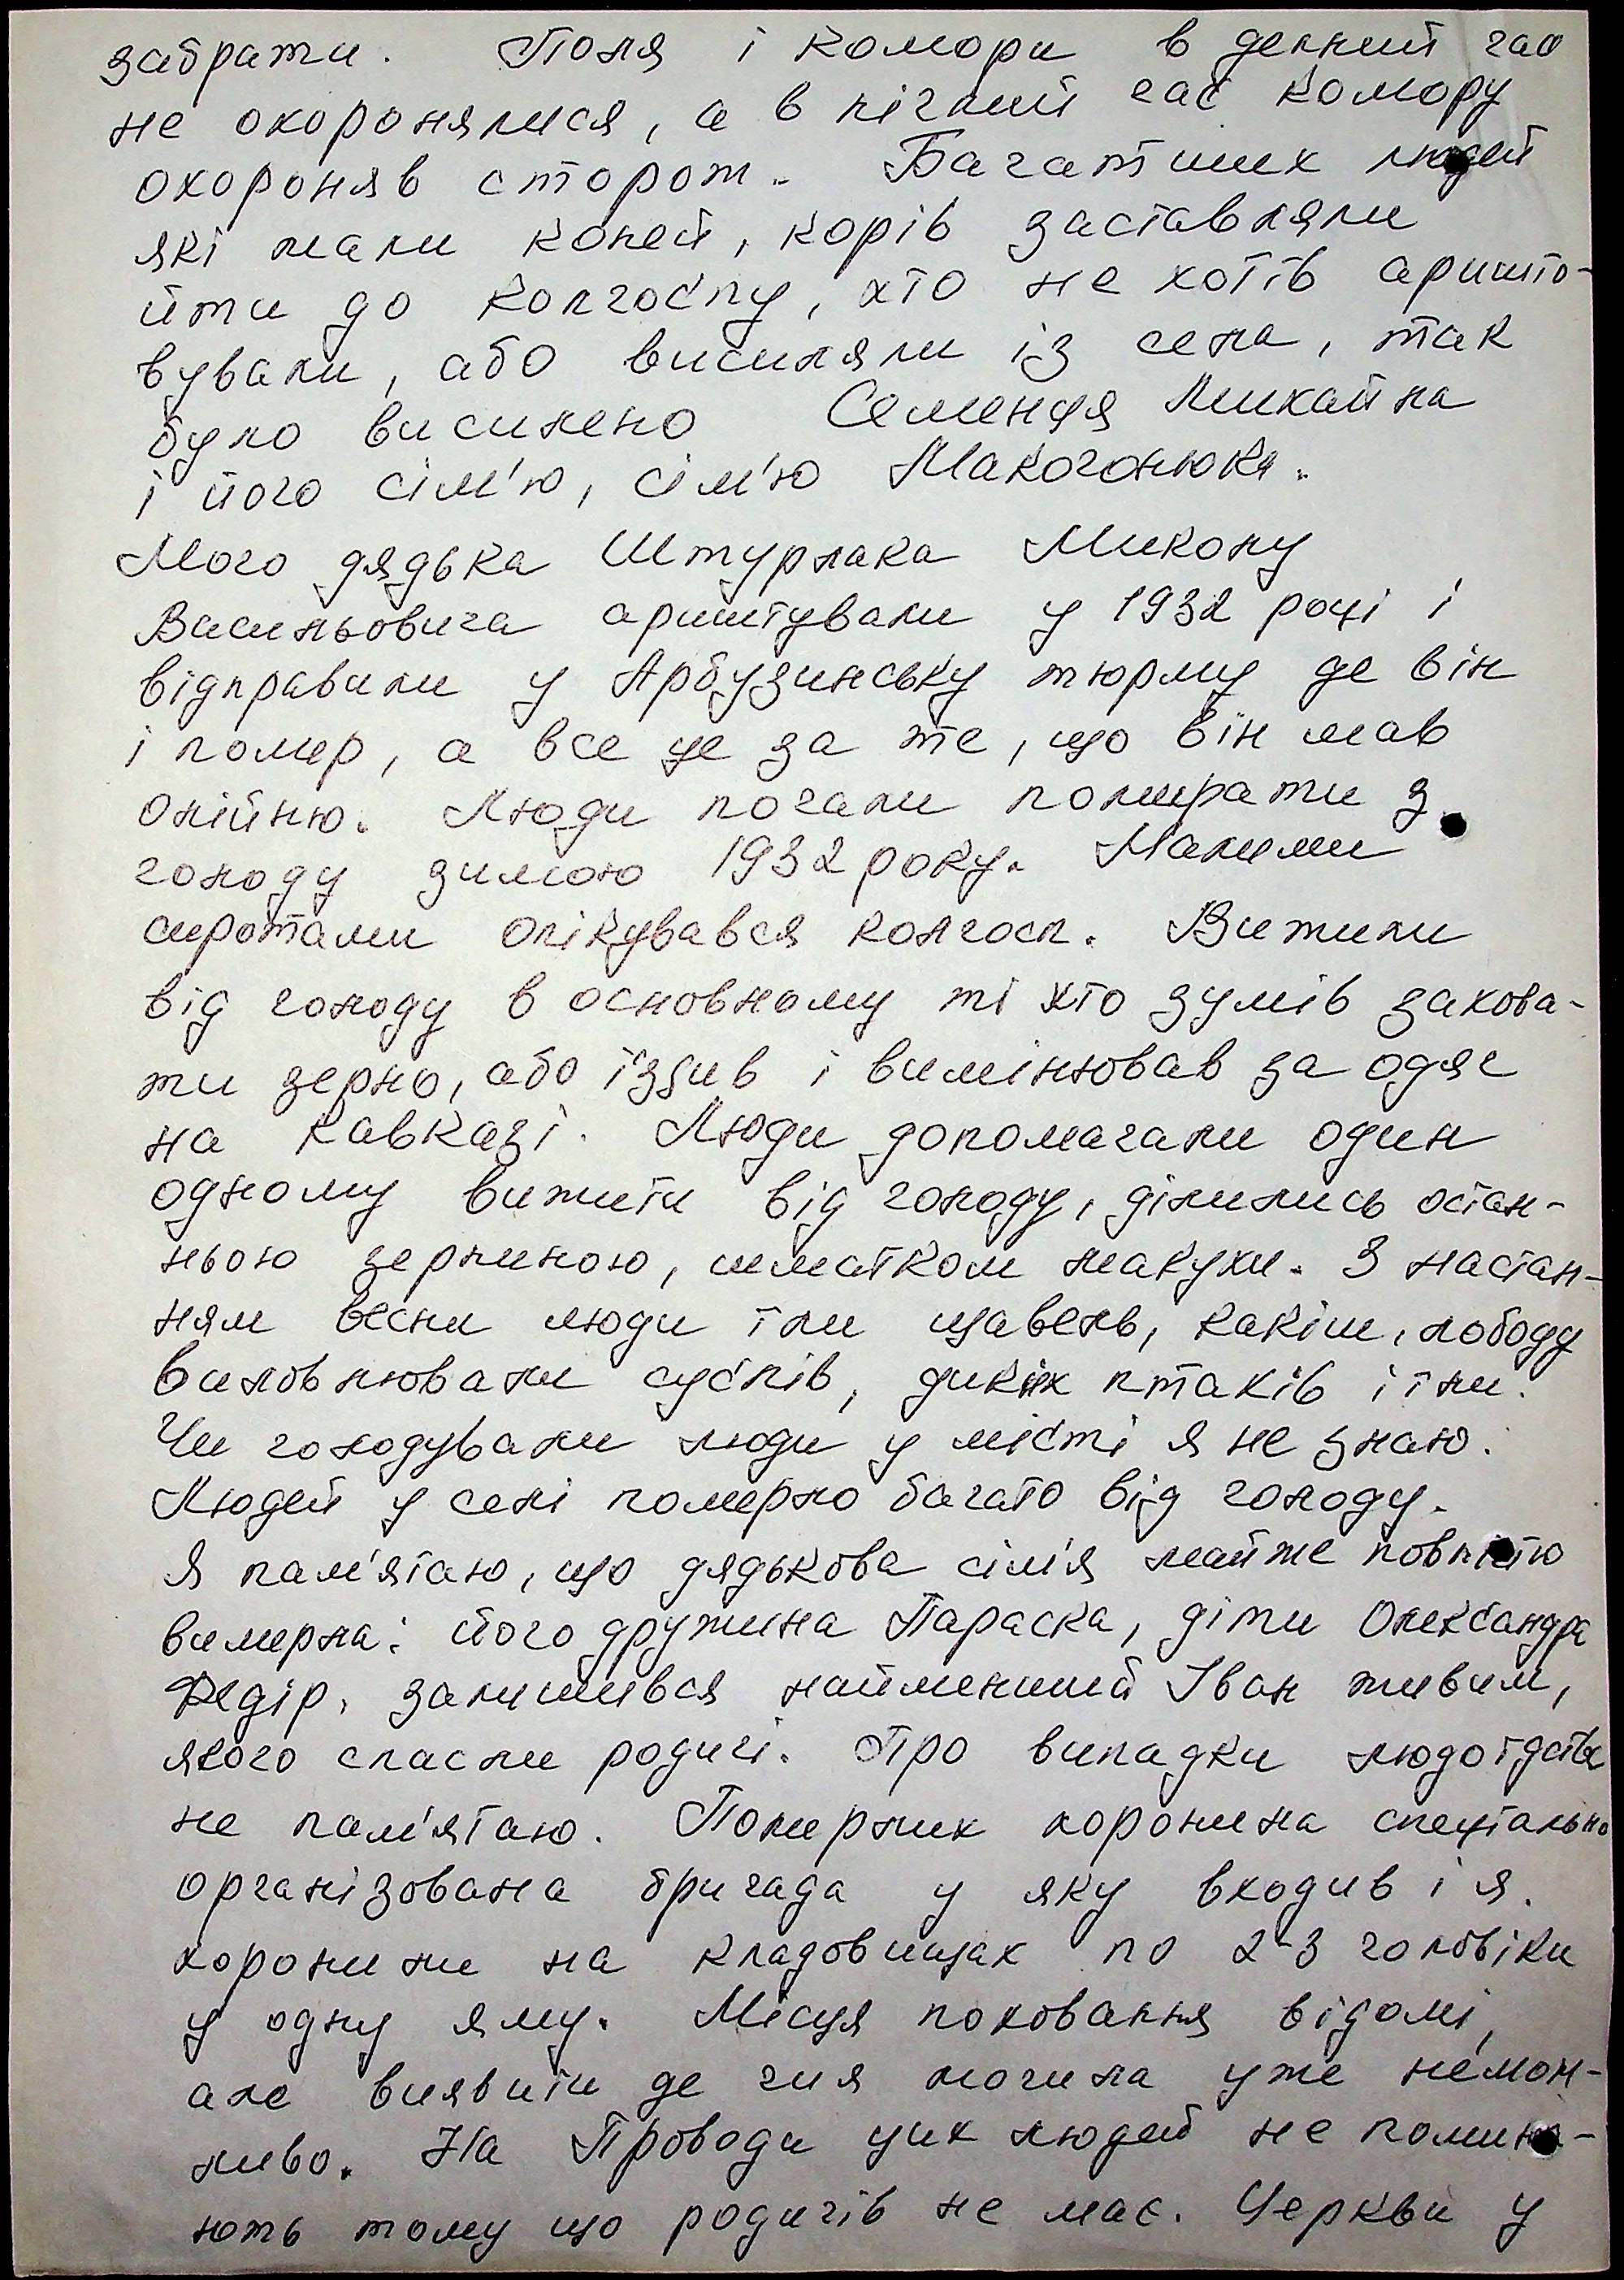 забрати. Поля і комори в денний час
не охоронялися, а в нічний час комору
охороняв сторож. Багатших людей
які мали коней, корів заставляли
йти до колгоспу, хто не хотів аришто-
вували, або висиляли із села, так
було висилено Семенця Михайла
і його сім'ю, сім'ю Макогонюка.
Мого дядька Штурлака Миколу
Васильовича ариштували у 1932 році і
відправили у Арбузинську тюрму де він
і помер, а все це за те, що він мав
олійню. Люди почали помирати з
голоду зимою 1932 року. Малими
сиротами опікувався колгосп. Вижили
від голоду в основному ті хто зумів захова-
ти зерно, або їздив і вимінював за одяг
на Кавказі. Люди допомагали один
одному вижити від голоду, ділились остан-
ньою зерниною, шматком макухи. З настан-
ням весни люди їли щавель, калачик, лободу
виловлювали сусліів, диких птахів і їли.
Чи голодували люди у місті я не знаю.
Людей у селі померло багато від голоду.
Я пам'ятаю, що дядькова сім'я майже повністю
вимерла: його дружина Параска, діти Олександра
Федір, залишився найменший Іван живим,
якого спасли родичі. Про випадки людоїдства
не пам'ятаю. Померлих хоронила спеціально
організована бригада у яку входив і я.
хоронили на кладовищах по 2-3 чоловіки
у одну яму. Місця поховання відомі,
але виявити де чия могила уже немож-
ливо. На Проводи цих людей не помина-
ють тому що родичів не має. Церкви у